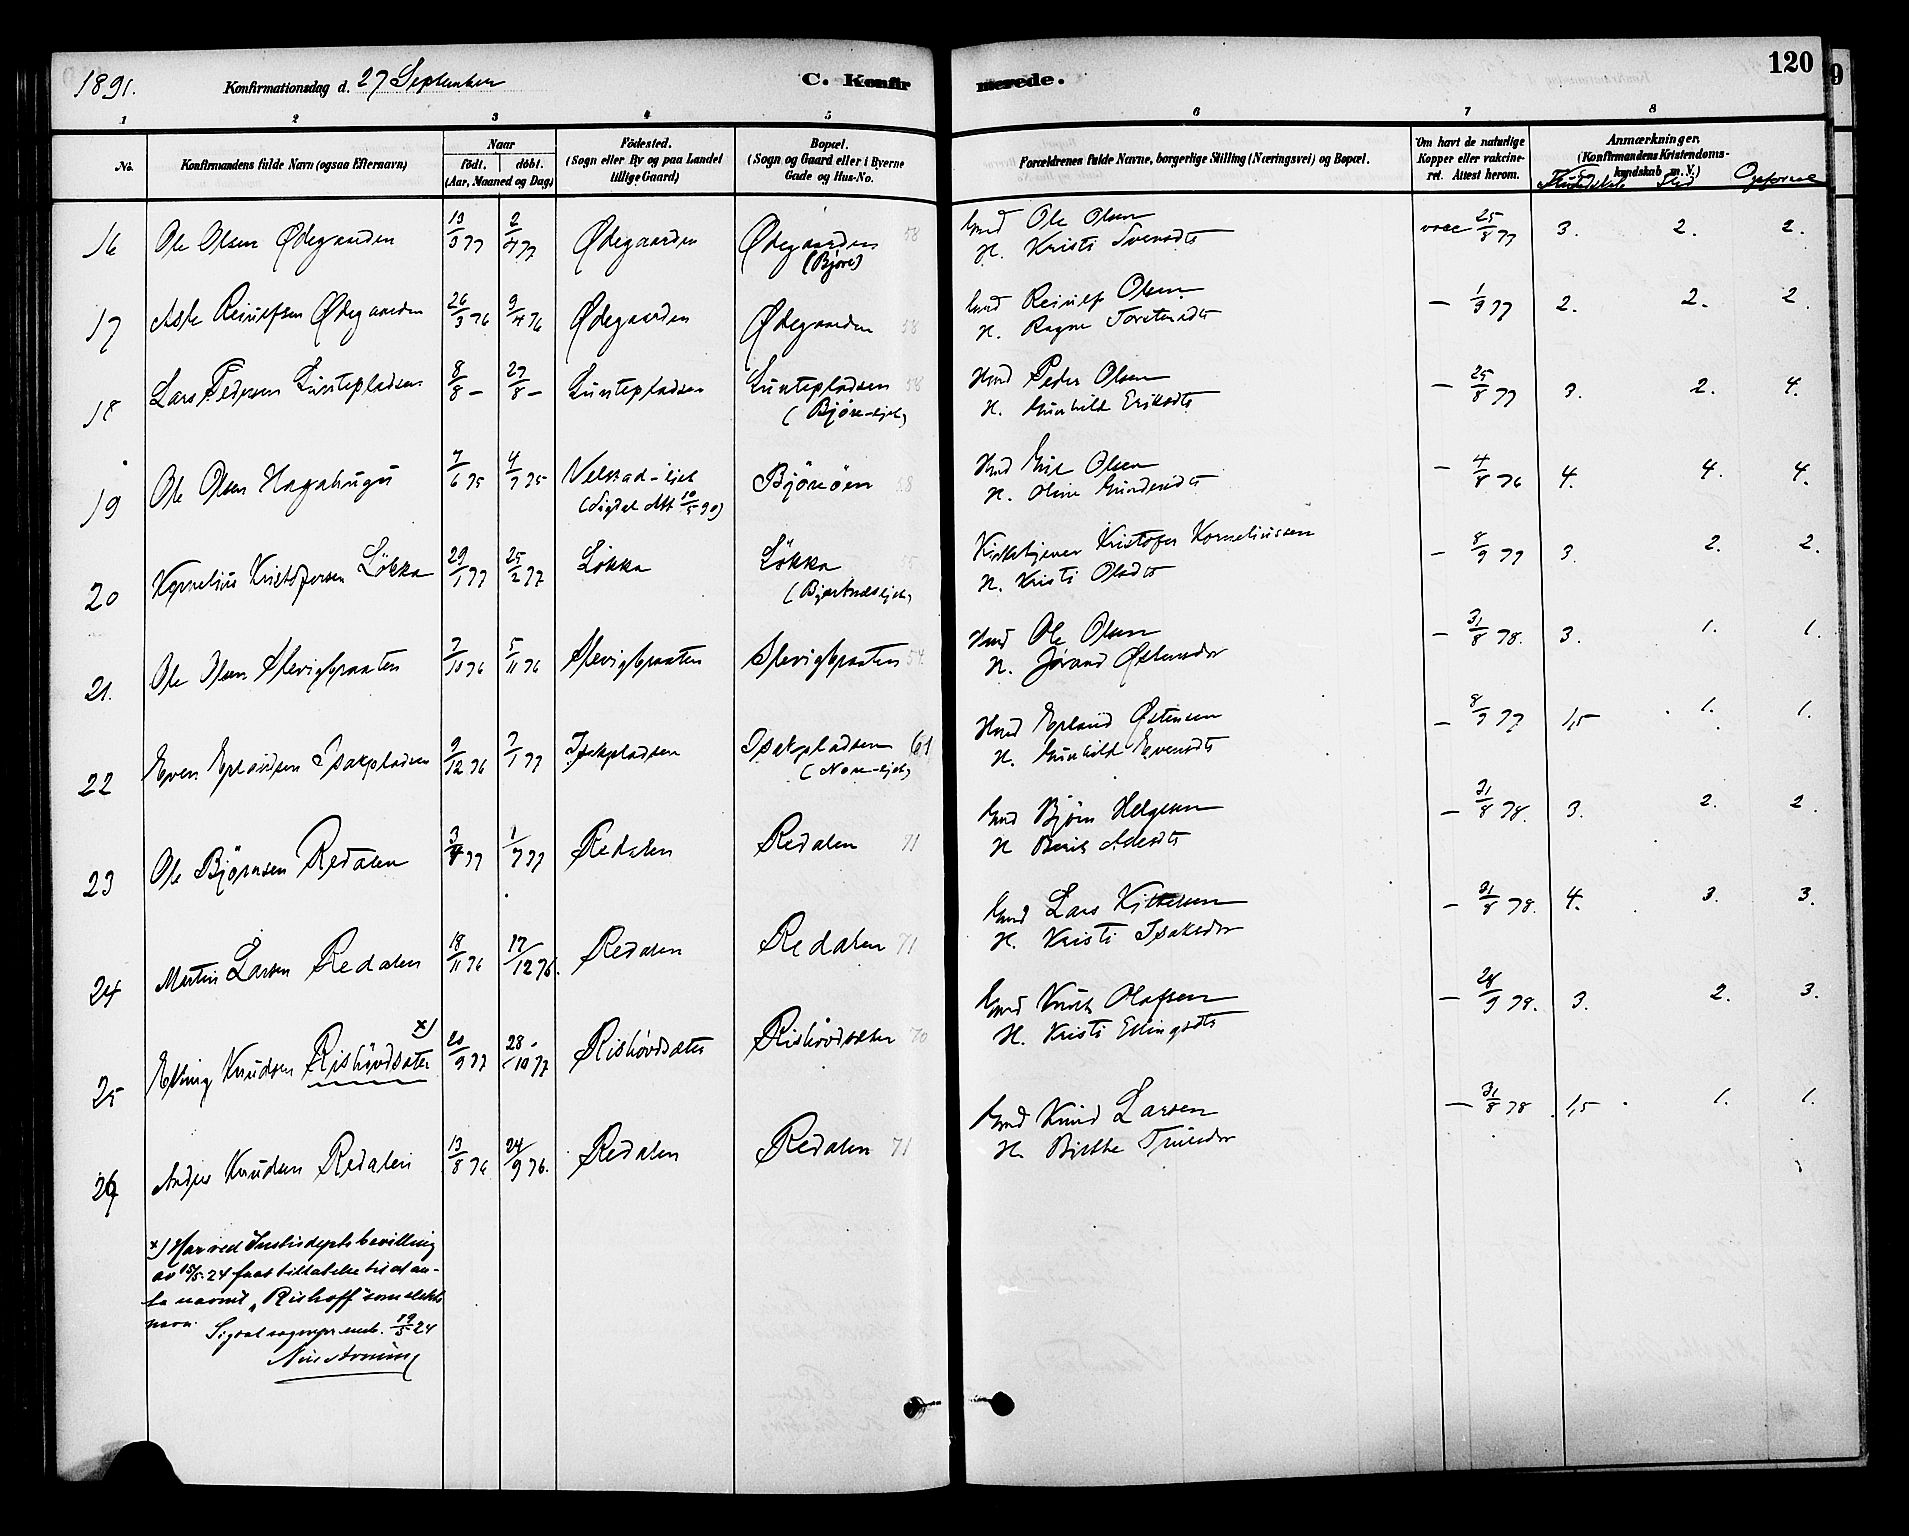 1891.
Konfirmationsdag d. 27 September
C. Konfir
merede.
120
1 2 3 4 5 6 7 8
No.
Konfirmandens fulde Navn (ogsaa Efternavn)
Naar
Födt. döbt.
(Aar, Maaned og Dag)
Födested.
(Sogn eller By og paa Landet
tillige Gaard)
Bopæl.
(Sogn og Gaard eller i Byerne
Gade og Hus-No.
Forældrenes fulde Navne, borgerlige Stilling (Næringsvei) og Bopæl.
Om havt de naturlige
Kopper eller vakcine-
ret. Attest herom.
Anmærkninger,
(Konfirmandens Kristendoms-
kundskab m. V.)
Kundskab Flid Opførsel
16 Ole Olsen Ødegaarden 13/3 77 2/4 77 Ødegaarden Ødegaarden 58 Gmd Ole Olsen vacc 25/8 77 3. 2. 2.
(Bjøre) H. Kristi Svensdtr
17 Asle Reiulfsen Ødegaarden 26/3 76 9/4 76 Ødegaarden Ødegaarden 58 Gmd Reiulf Olsen – 1/9 77 2. 2. 2.
H. Ragne Torstensdtr
18 Lars Pedersen Luntepladsen 8/8 – 27/8 – Luntepladsen Luntepladsen 58 Hmd Peder Olsen – 25/8 77 3. 2. 4.
(Bjøre-ejet) H. Gunhild Eriksdtr
19 Ole Olsen Hagahugu 7/6 75 4/7 75 Velstad-ejet Bjøreøen 58 Hmd Olsen – 4/8 76 4. 4. 4.
(Sigdal Att 10/5 90) H. Oline Gundersdtr
20 Kornelius Kristofersen Løkka 29/1 77 25/2 77 Løkka Løkka Kirketjener Kristofer Korneliussen – 8/9 77 3. 2. 2.
(Bjertnesejet) H. Kristi Olsdtr
21. Ole Olsen Slevigbraaten 7/10 76 5/11 76 Slevigbraaten Slevigbraaten 54 Hmd Ole Olsen – 31/8 78. 3. 1. 1.
H. Jørand Østensdtr
22 Even Erlandsen Isakpladsen 9/12 76 7/1 77 Isakpladsen Isakpladsen 61 Hmd Erland Østensen – 8/9 77 1,5 1. 1.
(Nore-ejet) H. Gunhild Evensdtr
23 Ole Bjørnsen Redalen 3/4 77 1/7 77 Redalen Redalen 71 Gmd Bjørn Helgesen – 31/8 78. 3. 2. 2.
H Berit
24 Martin Larsen Redalen 18/11 76 17/12 76. Redalen Redalen 71 Gmd Lars Kittelsen – 31/8 78. 4. 3. 3.
H. Kristi Isaksdtr
25 Elling Knudsen Rishøvdsæter x) 20/9 77 28/10 77 Rishøvdsæter Rishøvdsæter 70 Gmd Knut Olafsen – 28/9 78. 3. 2. 3.
H. Kristi Ellingsdtr
26 Anders Knudsen Redalen 13/8 76 24/9 76. Redalen Redalen 71 Gmd Knud Larsen – 31/8 78 1,5 1. 1.
H. Birthe Trulsdtr
x) Har ved Justisdepts bevilling
av 15/5.24 faat tilladelse til at an-
ta navnet „Rishoff" som slekts
navn.
Sigdal sogneprestemb. 19/5 24